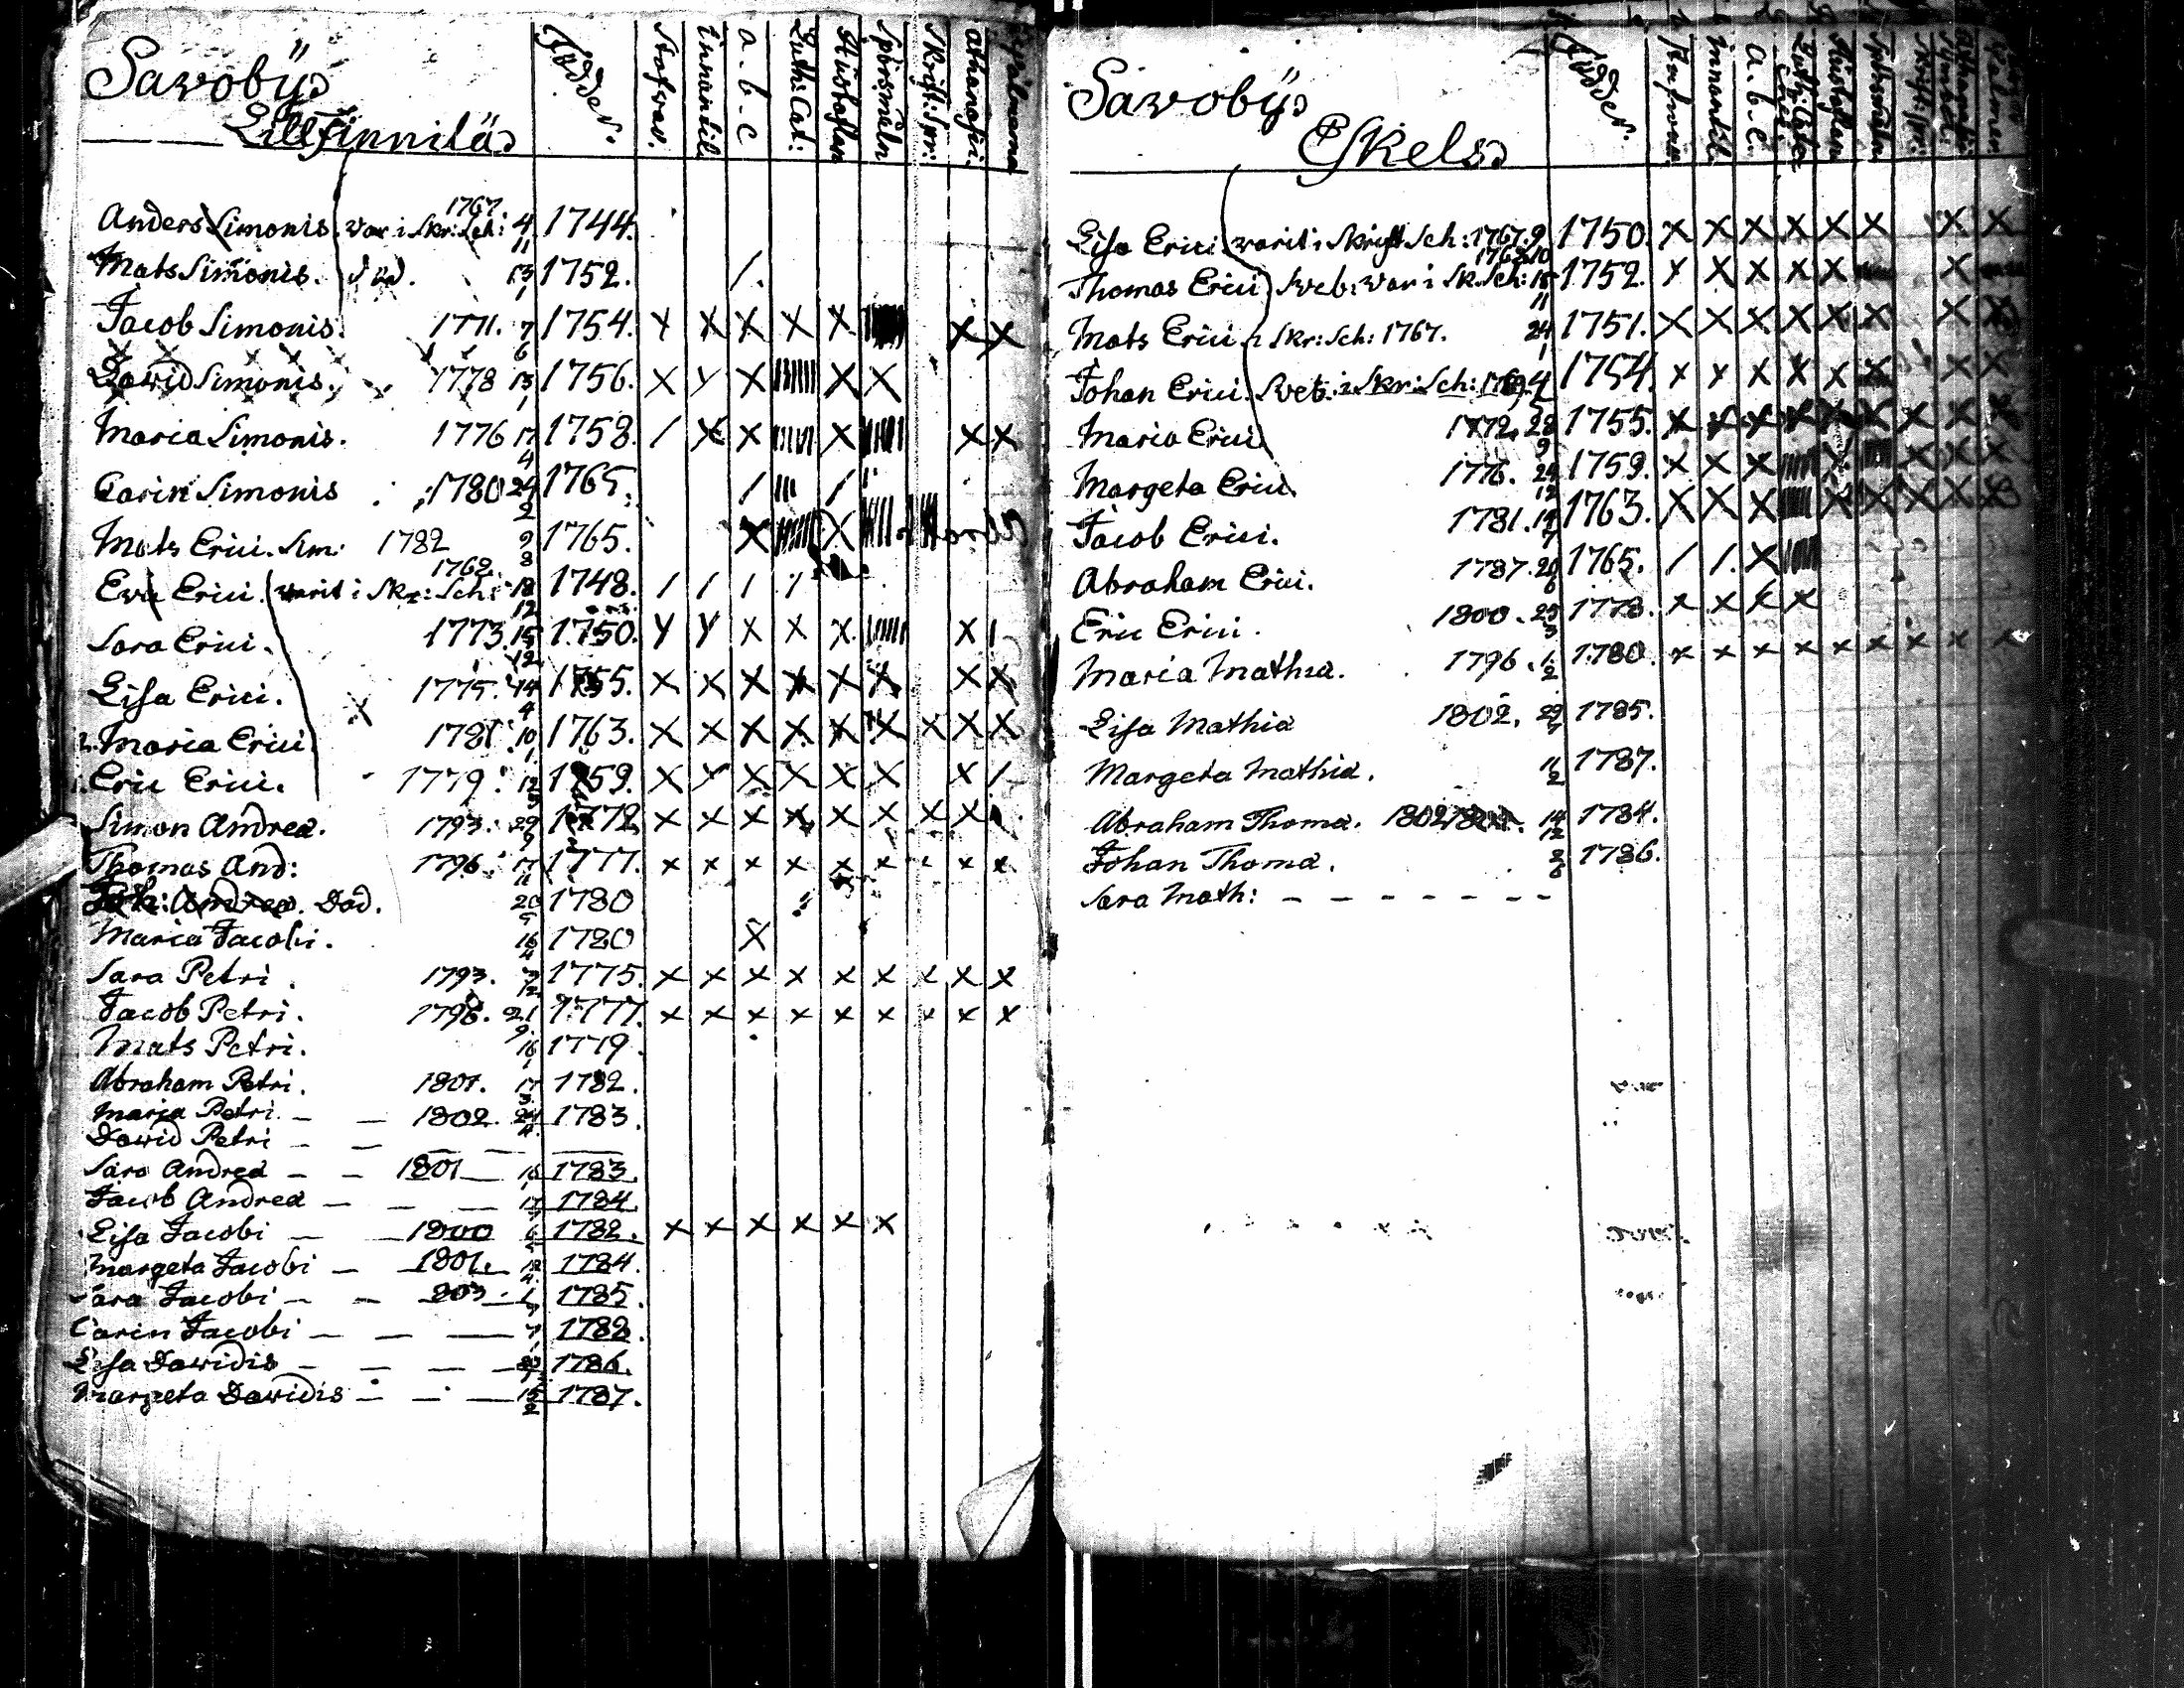 Savobÿs
Lillfinniläs
Födder.
Stafvar.
innantil
a. b. c
Luth: Cat:
Hustaflan
Spörsmåln
Skrift: Spr:
athanasii
Anders Simonis. var i Skr: Sch: 1767. 4/11 1744.
Mats Simonis. död. 13/1 1752. /.
Jacob Simonis. 1771. 7/6 1754. x x x x x x x
David Simonis. 1778 13/1 1756. x x x x x
Maria Simonis. 1776 17/4 1758. / x x x x x
Carin Simonis 1780 24/2 1765. / /
Mats Erici. Sim: 1782 9/8 1765. x x
Eva Erici. varit i Skr: Sch: 1762. 18/12 1748. / / / /
Sara Erici. 1773. 15/12 1750. x x x x x x /
Lisa Erici. 1775. 14/4 1755. x x x x x x x x
2. Maria Erici 1781 10/1 1763. x x x x x x x x x
1. Eric Erici. 1779. 12/3 1759. x x x x x x x /
Simon Andreæ. 1793. 29/9 1772 x x x x x x x x
Thomas And: 1796. 17/11 1777. x x x x x x x x x
Joh: Andreæ. Död. 20/9 1780
Maria Jacobi. 16/4 1780 x
Sara Petri. 1793. 7/12 1775. x x x x x x x x x
Jacob Petri. 1796. 21/9 1777. x x x x x x x x x
Mats Petri. 16/1 1779.
Abraham Petri. 1801. 17/3 1782.
Maria Petri. — — 1802. 24/4 1783.
David Petri — — — —
Sara Andreæ — — 1801 — 1783.
Jacob Andreæ — — — 17 1784.
Lisa Jacobi — — 1800 6 1782. x x x x x x
Margeta Jacobi — 1801. 12/4 1784.
Sara Jacobi — — 803. 1785.
Carin Jacobi — — — 7 1788.
Lisa Davidis — — — — 1786.
Margeta Davidis — — — 15/2 1787.
Savobÿs
Eskels
Födder.
Stafvar
innantil
a. b. c.
Luth: Cat:
Hustaflan
Spörsmåln
Skrift: spr:
Lisa Erici varit i Skrift Sch: 1767. 9/10 1750. x x x x x x x x
Thomas Erici Sveb: var i Sk. Sch: 1768 18/11 1752. x x x x x x
Mats Erici i Skr: Sch: 1767. 24/1 1751. x x x x x x x x
Johan Erici. Sveb. i Skr: Sch: 1769 4/2 1754. x x x x x x x x
Maria Erici 1772. 28/9 1755. x x x x x x x x x
Margeta Erici. 1776. 24/12 1759. x x x x x x x
Jacob Erici. 1781. 19/7 1763. x x x x x x x x
Abraham Erici. 1787. 20/6 1765. / /. x
Eric Erici. 1800. 25/3 1778. x x x x
Maria Mathiæ. 1796. 1/2 1780. x x x x x x x x x
Lisa Mathiæ 1802. 29 1785.
Margeta Mathiæ. 11/2 1787.
Abraham Thomæ. 1802 14/12 1784.
Johan Thomæ. 2/6 1786.
Sara Math: — — — — — — —